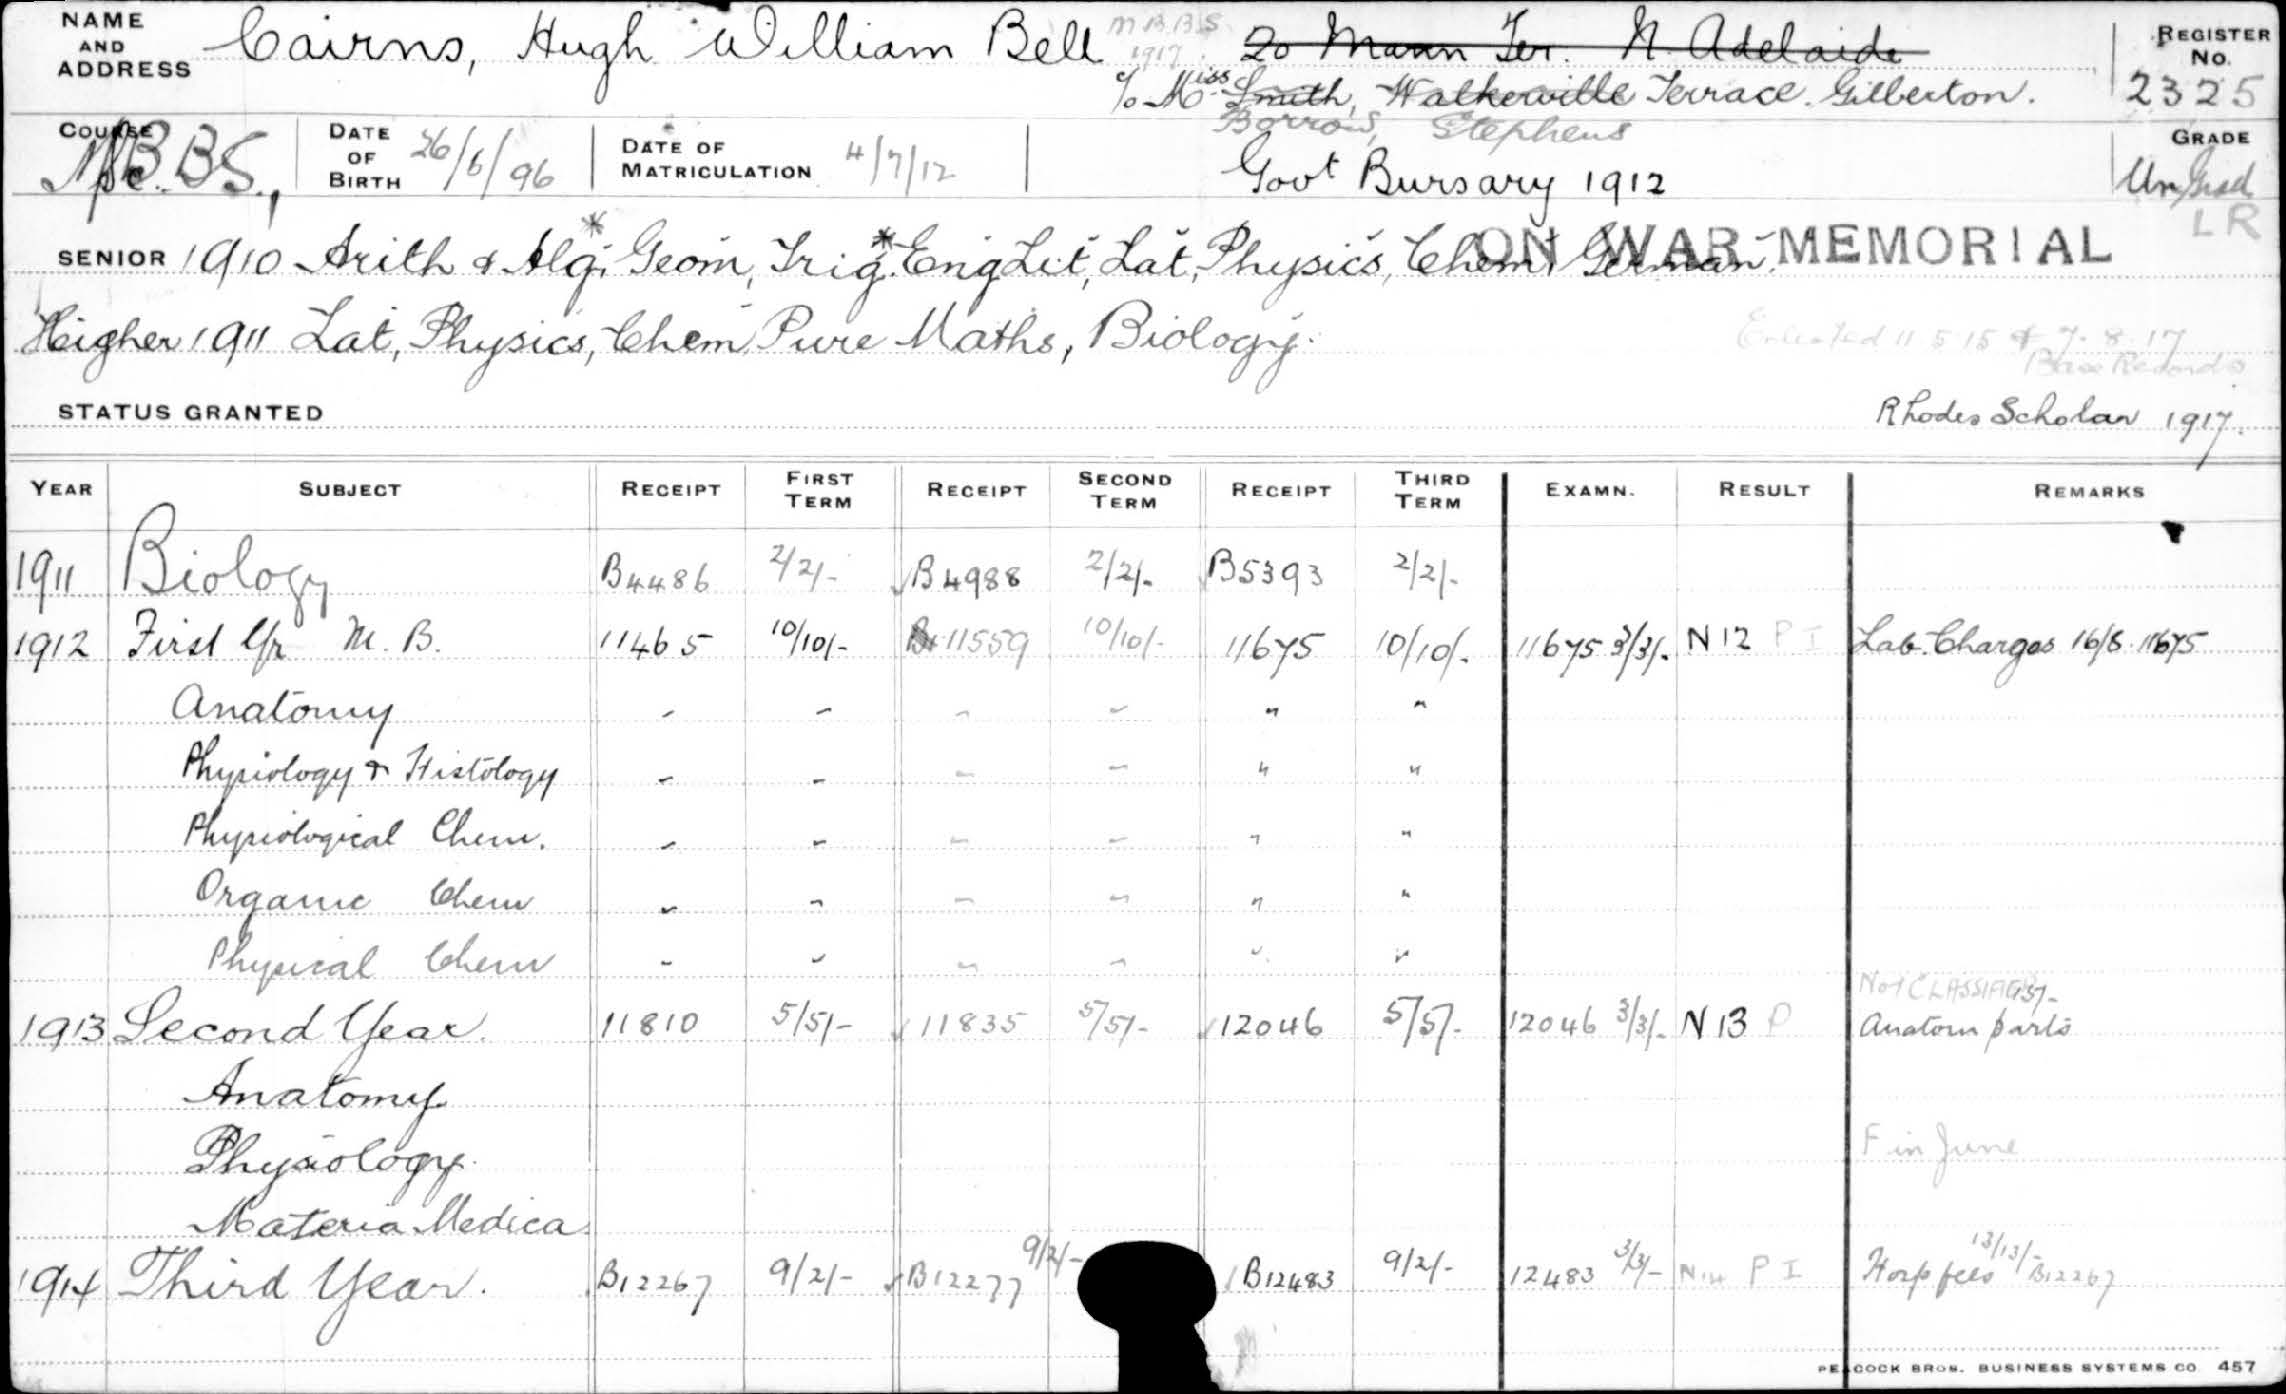 NAME AND ADDRESS Cairns, Hugh William Bell M.B.B.S 1917 20 Mann Ter. N. Adelaide
c/o Miss Smith, Walkerville Terrace. Gilberton.
Borrows, Stephens
REGISTER No. 2325
COURSE M.B.B.S., DATE OF BIRTH 26/6/96 DATE OF MATRICULATION 4/7/12 Govt Bursary 1912
GRADE Un/Grad
LR
ON WAR MEMORIAL
SENIOR 1910 Arith & Alg*, Geom, Trig*, Eng Lit, Lat, Physics, Chem, German.
Higher 1911 Lat, Physics, Chem, Pure Maths, Biology.
Enlisted 11 5 15 & 7.8.17
Base Records
STATUS GRANTED Rhodes Scholar 1917.
YEAR SUBJECT RECEIPT FIRST TERM RECEIPT SECOND TERM RECEIPT THIRD TERM EXAMN. RESULT REMARKS
1911 Biology B4486 2/2/- B4988 2/2/- B5393 2/2/-
1912 First Yr M.B. 11465 10/10/- 11559 10/10/- 11675 10/10/- 11675 3/3/- N12 P I Lab. Charges 16/8 11675
Anatomy " " " " " "
Physiology & Histology " " " " " "
Physiological Chem. " " " " " "
Organic Chem " " " " " "
Physical Chem " " " " " "
Not CLASSIFIED
1913 Second Year. 11810 5/5/- 11835 5/5/- 12046 5/5/- 12046 3/3/- N13 P Anatom parts
Anatomy
Physiology. F in June
Materia Medica
1914 Third Year. B12267 9/2/- B12277 9/2/- B12483 9/2/- 12483 3/3/- N14 P I Hosp fees 13/13/- B12267
PEACOCK BROS. BUSINESS SYSTEMS CO. 457